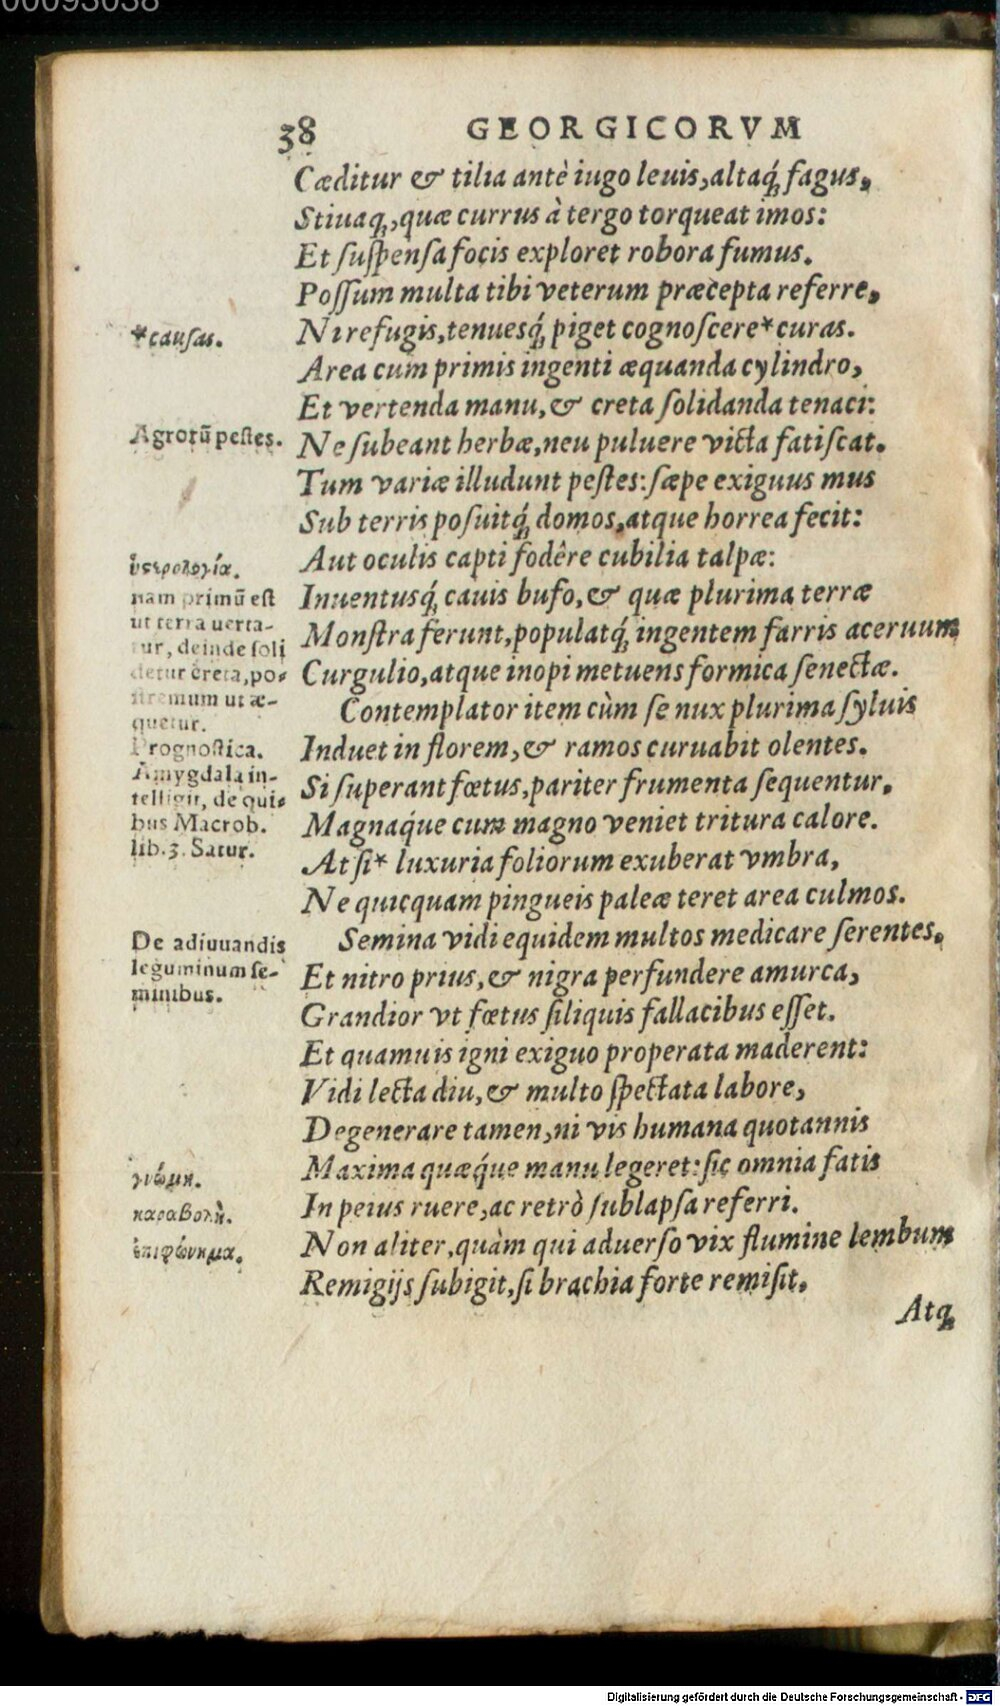 00093038
38 GEORGICORVM
Cæditur & tilia antè iugo leuis, altaq́; fagus,
Stiuaq;, quæ currus à tergo torqueat imos:
Et suspensa focis exploret robora fumus.
Possum multa tibi veterum præcepta referre,
*causas.
Ni refugis, tenuesq́; piget cognoscere* curas.
Area cum primis ingenti æquanda cylindro,
Et vertenda manu, & creta solidanda tenaci:
Agrorũ pestes.
Ne subeant herbæ, neu puluere victa fatiscat.
Tum variæ illudunt pestes: sæpe exiguus mus
Sub terris posuitq́; domos, atque horrea fecit:
Aut oculis capti fodêre cubilia talpæ:
ὑστερολογία.
nam primũ est
ut terra uerta-
tur, deinde soli
detur creta, po-
stremum ut æ-
quetur.
Inuentusq́; cauis bufo, & quæ plurima terræ
Monstra ferunt, populatq́; ingentem farris aceruum
Curgulio, atque inopi metuens formica senectæ.
Contemplator item cùm se nux plurima syluis
Prognostica.
Amygdala in-
telligit, de qui-
bus Macrob.
lib. 3. Satur.
Induet in florem, & ramos curuabit olentes.
Si superant fœtus, pariter frumenta sequentur,
Magnaq́ue cum magno veniet tritura calore.
At si* luxuria foliorum exuberat vmbra,
Ne quicquam pingueis paleæ teret area culmos.
De adiuuandis
leguminum se-
minibus.
Semina vidi equidem multos medicare serentes,
Et nitro prius, & nigra perfundere amurca,
Grandior vt fœtus siliquis fallacibus esset.
Et quamuis igni exiguo properata maderent:
Vidi lecta diu, & multo spectata labore,
Degenerare tamen, ni vis humana quotannis
γνώμη.
Maxima quæq́ue manu legeret: sic omnia fatis
παραβολὴ.
In peius ruere, ac retrò sublapsa referri.
ἐπιφώνημα.
Non aliter, quàm qui aduerso vix flumine lembum
Remigijs subigit, si brachia forte remisit,
Atq;
Digitalisierung gefördert durch die Deutsche Forschungsgemeinschaft - DFG